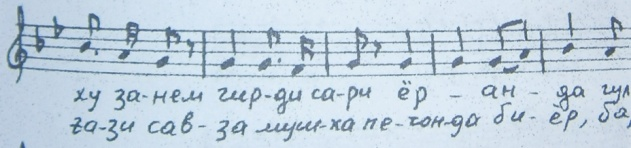 ху за-нем гир-ди са-ри ёр - ан - да гул
за-зи сав - за муш-ха пе-чон-да би- ёр, ба,